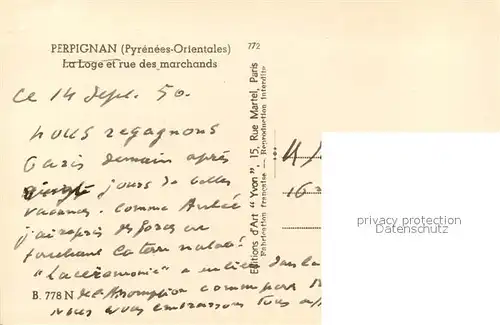 PERPIGNAN (Pyrénées-Orientales)
La Loge et rue des marchands
772
ce 14 Sept. 50.
nous regagnons
Paris demain après
jours de belles
vacances. comme
j'ai repris des forces en
touchant la terre natale!
"La cérémonie" a eu lieu dans la
B. 778 N
nous vous embrassons tous
Editions d'Art "Yvon", 15, Rue Martel, Paris
Fabrication française — Reproduction interdite
16
privacy protection
Datenschutz